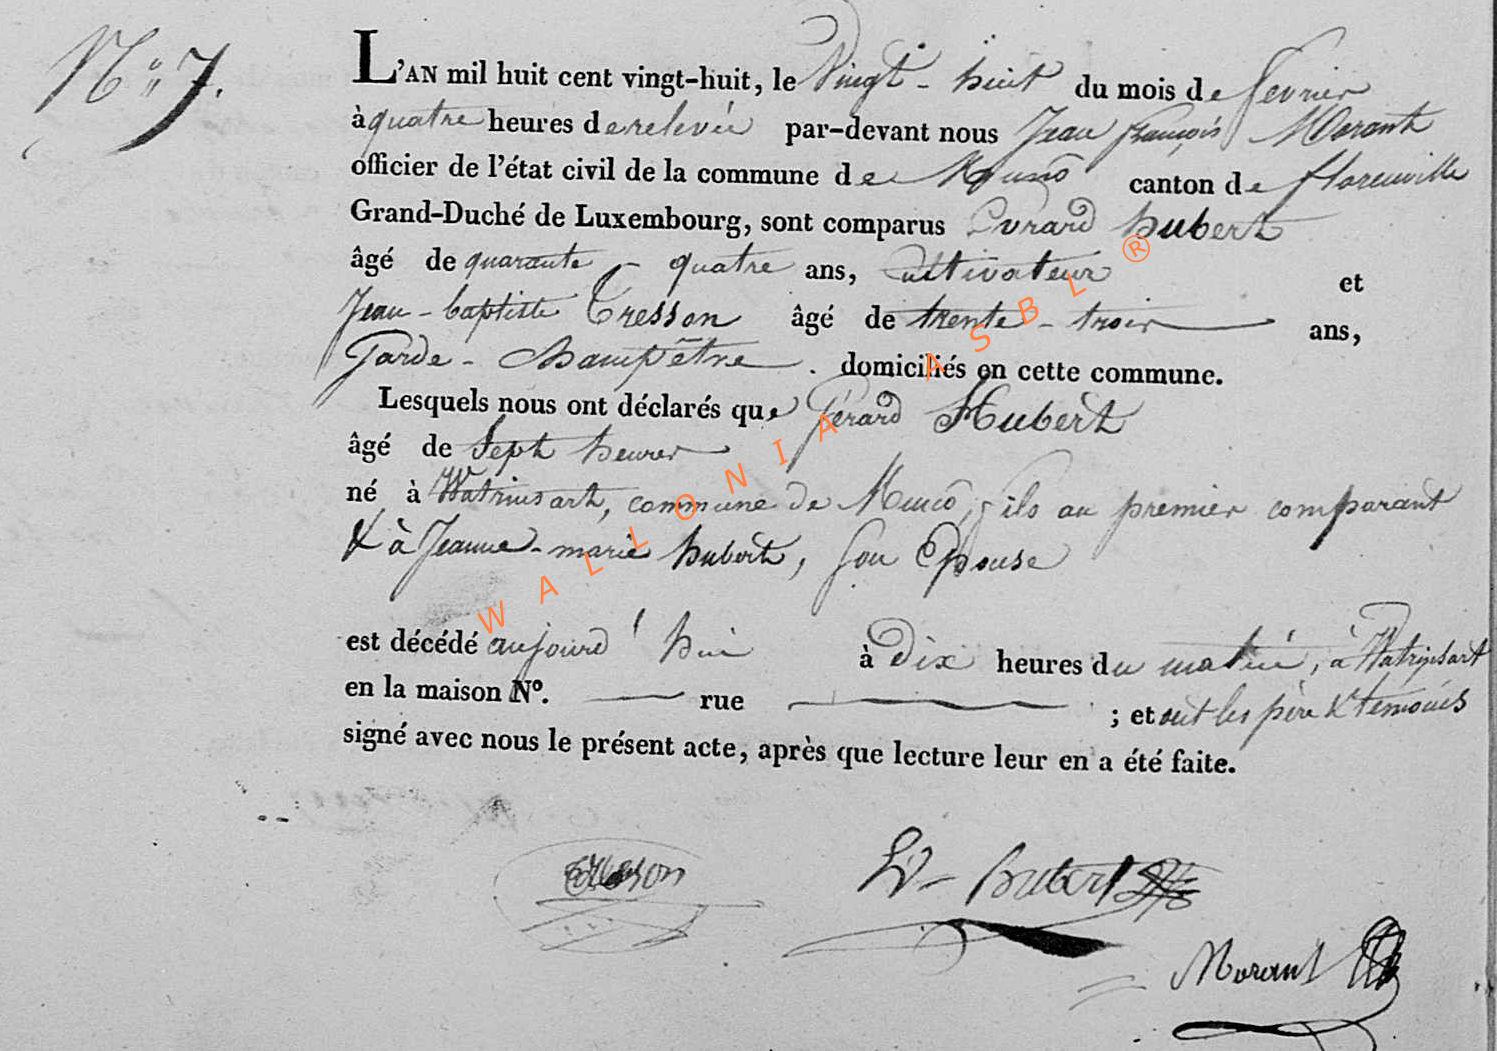 N° 7.
L'AN mil huit cent vingt-huit, le Vingt-huit du mois de fevrier
à quatre heures de relevée par-devant nous Jean françois Morant
officier de l'état civil de la commune de Muno canton de florenville
Grand-Duché de Luxembourg, sont comparus Evrard hubert
âgé de quarante-quatre ans, Cultivateur et
Jean-baptiste Tresson âgé de trente-trois ans,
Garde-Champêtre. domiciliés en cette commune.
Lesquels nous ont déclarés que Gérard Hubert
âgé de Sept heures
né à Watrinsart, commune de Muno, fils au premier comparant
& à Jeanne-marie hubert, son Epouse
est décédé aujourd'hui à dix heures du matin, à Watrinsart
en la maison N°. rue ; et ont les père & temoins
signé avec nous le présent acte, après que lecture leur en a été faite.
Tresson
Ev-hubert
Morant
WALLONIA ASBL ®